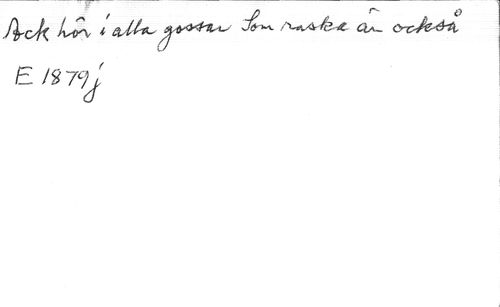 Ack hör i alla gossar Som raska än också
E 1879j